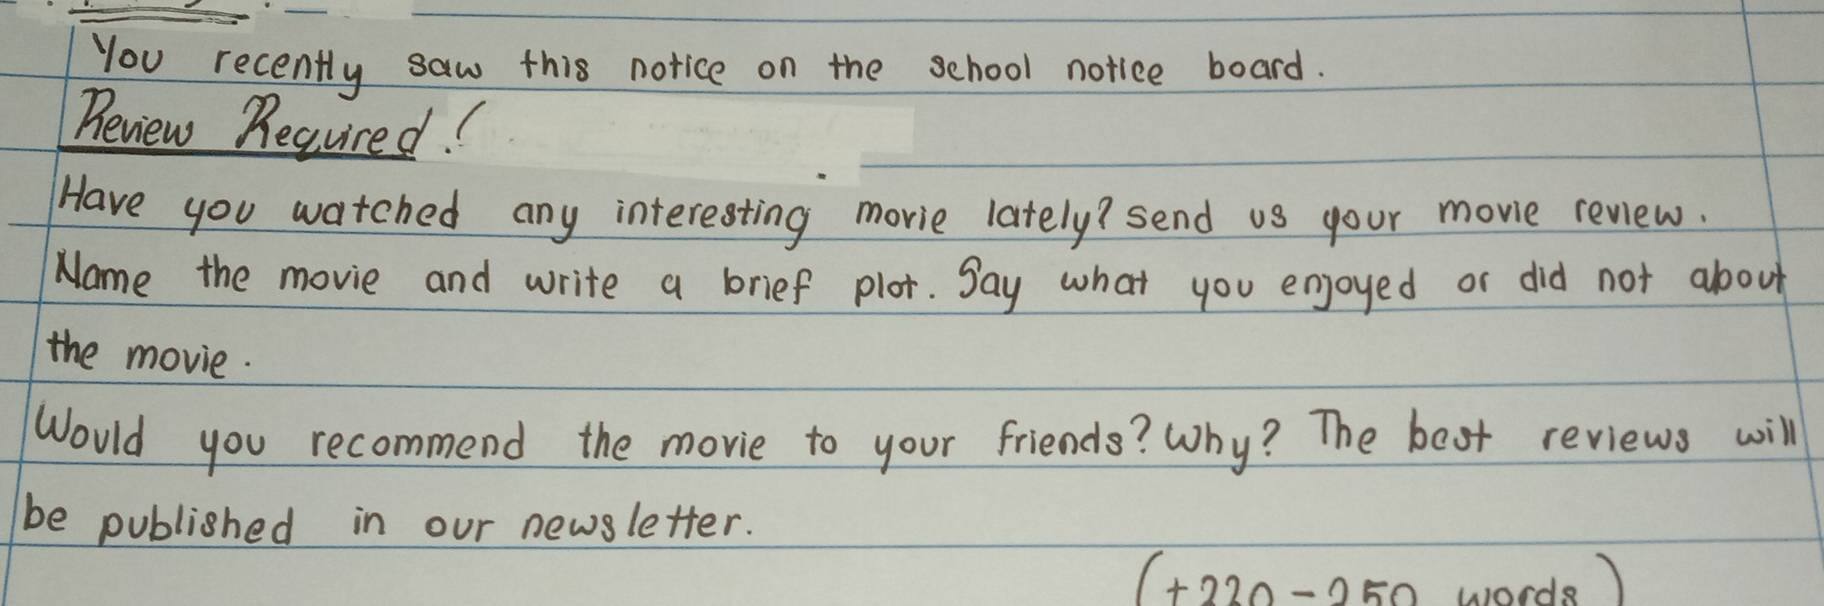 You recently saw this notice on the school notice board.
Review Required!
Have you watched any interesting movie lately? Send us your movie review.
Name the movie and write a brief plot. Say what you enjoyed or did not about
the movie.
Would you recommend the movie to your friends? Why? The best reviews will
be published in our newsletter.
(+220-250 words)